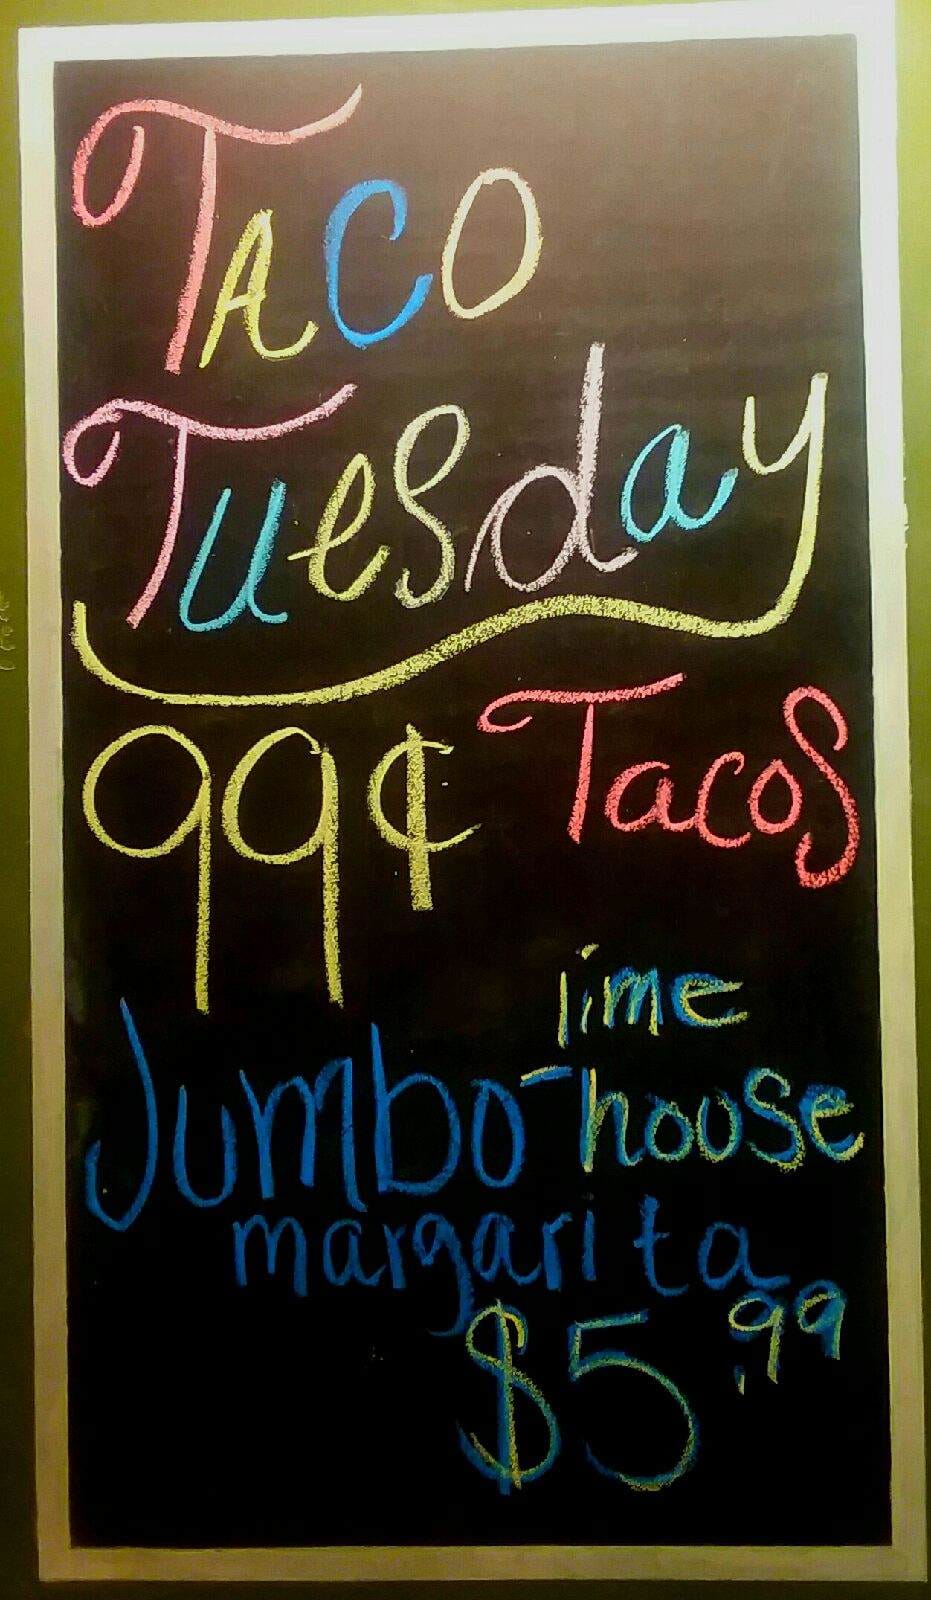 Taco
Tuesday
99¢ Tacos
lime
Jumbo-house
margarita
$5.99